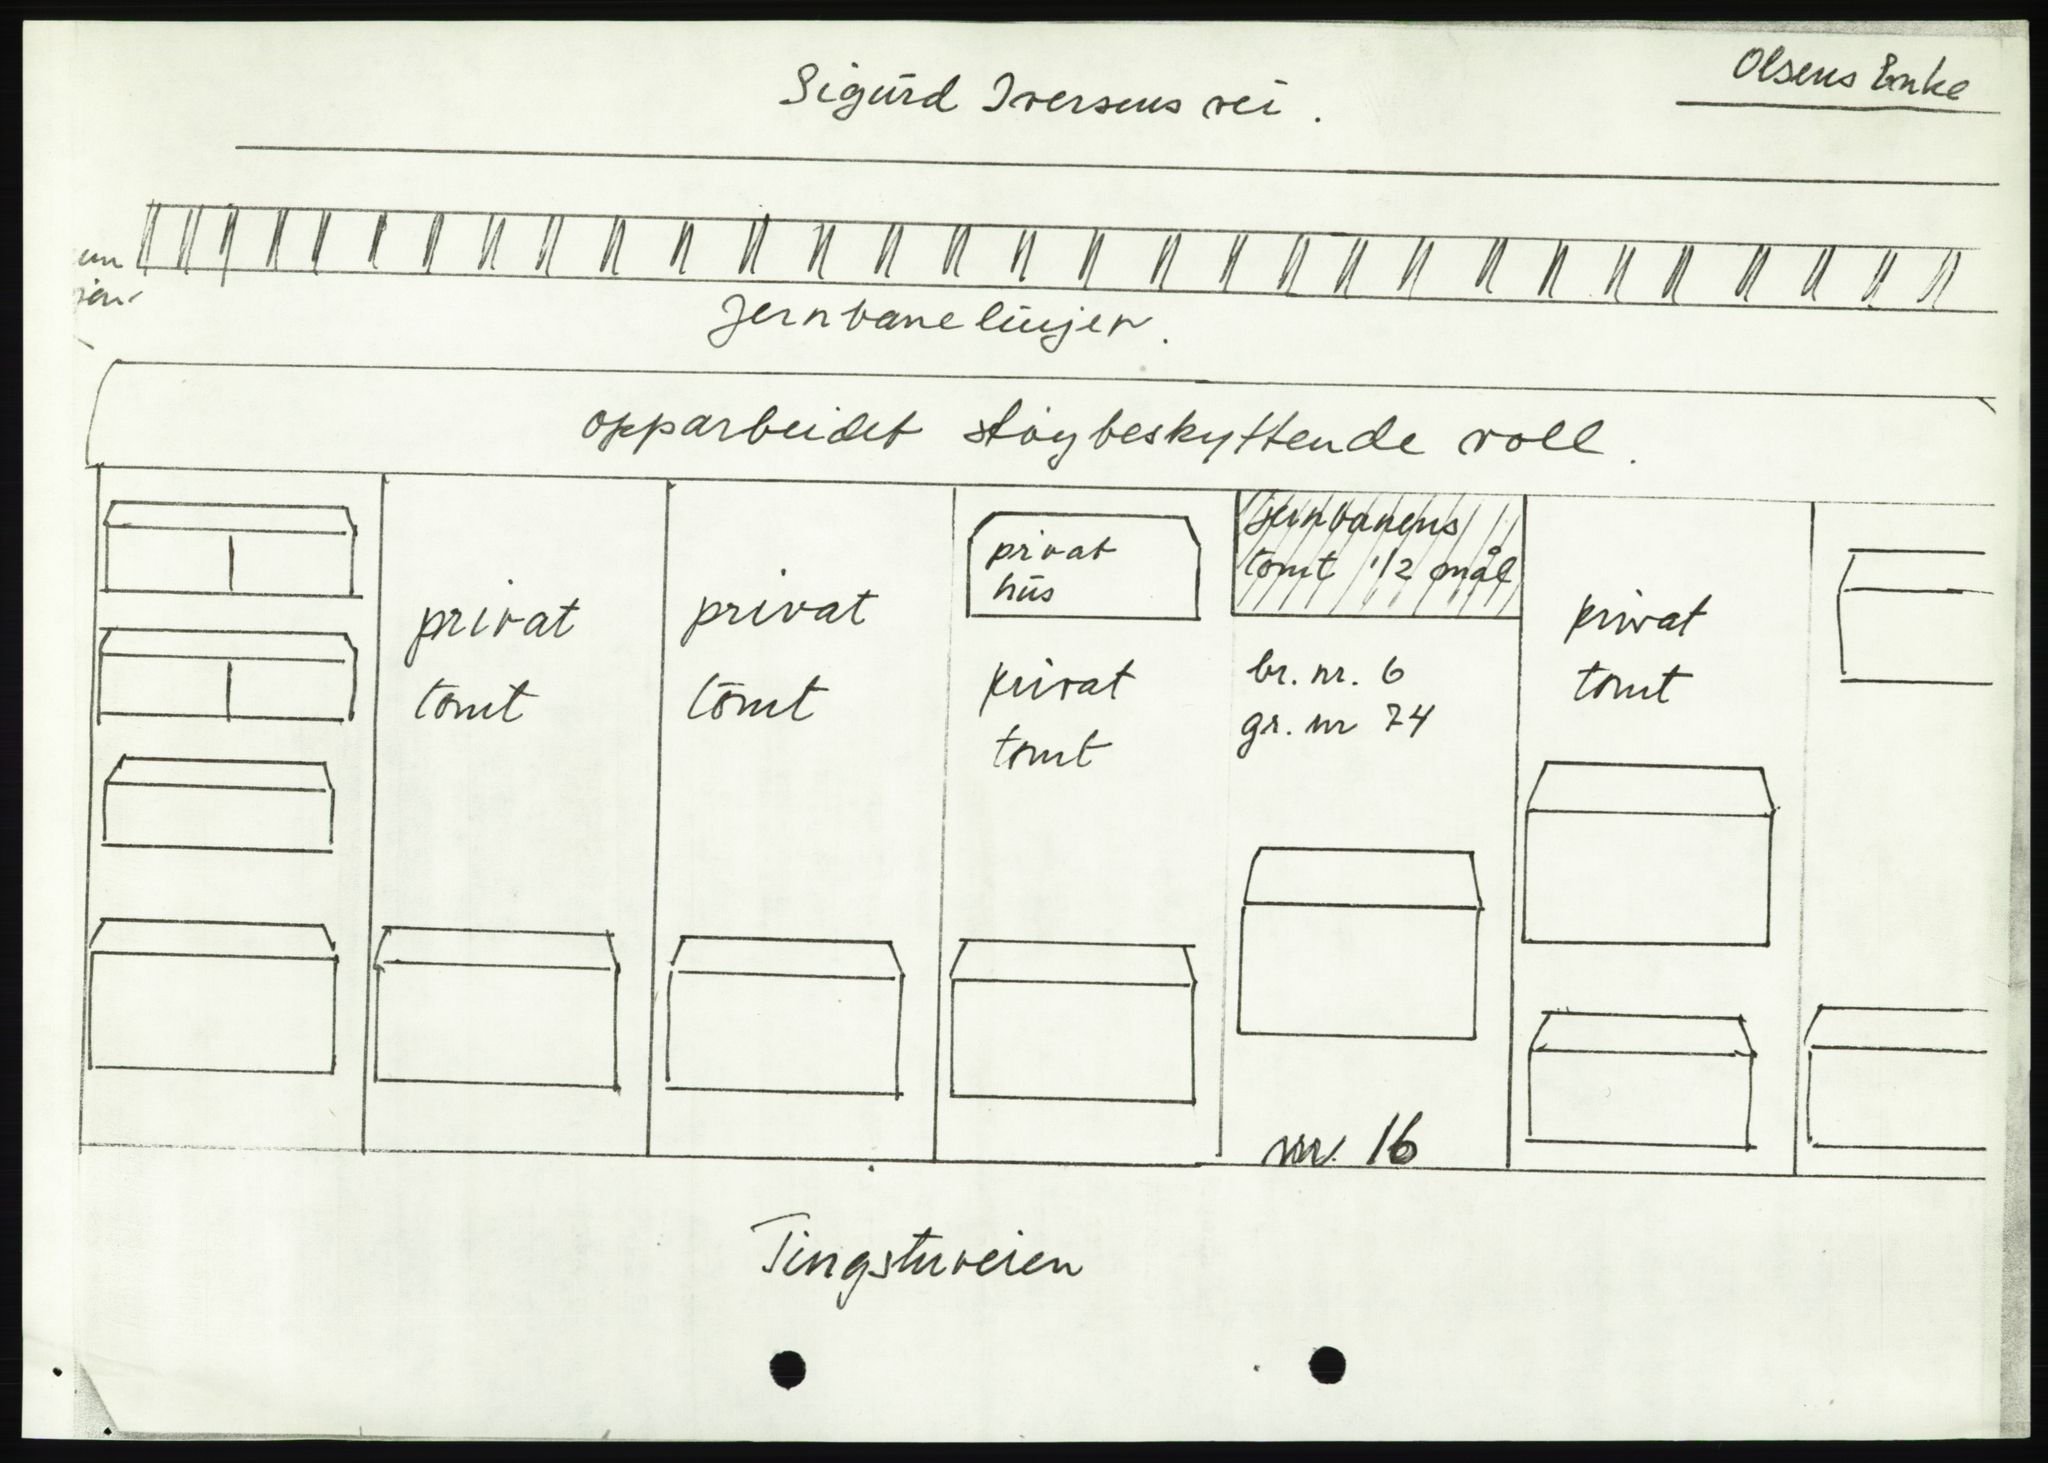 Olsens Enke
Sigurd Iversens vei.
Jernbanelinjen.
opparbeidet støybeskyttende voll.
privat
tomt
privat
tomt
privat
hus
privat
tomt
jernbanens
tomt 1/2 mål
br. nr. 6
gr. nr 74
nr. 16
privat
tomt
Tingstuveien